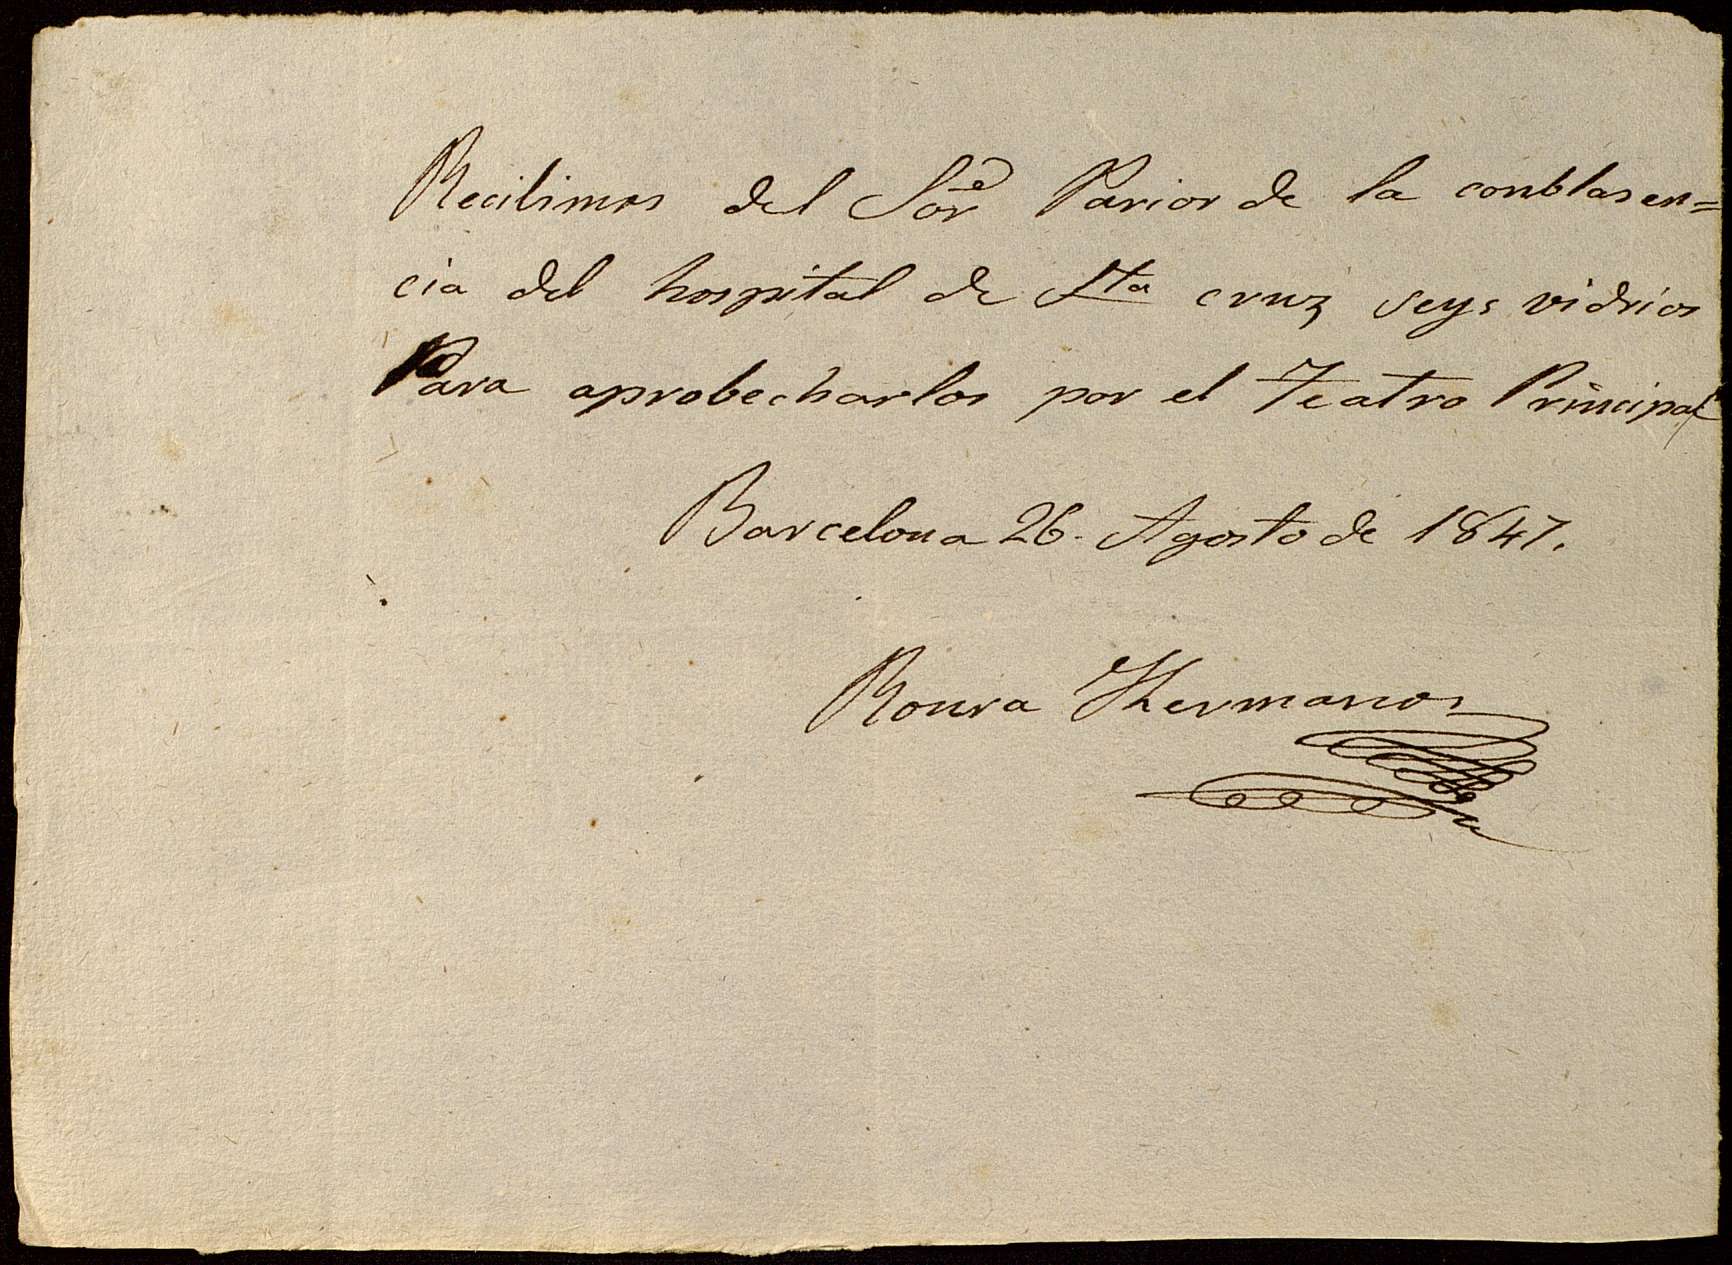 Recibimos del Sor Parior de la conblasen=
cia del hospital de Sta cruz seys vidrios
Para aprobecharlos por el Teatro Principal
Barcelona 26. Agosto de 1847.
Roura Hermanos